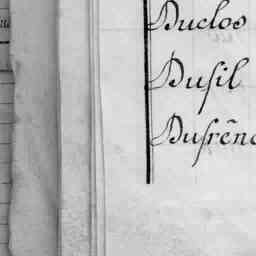 Duclos
Dusil
Dufrêne